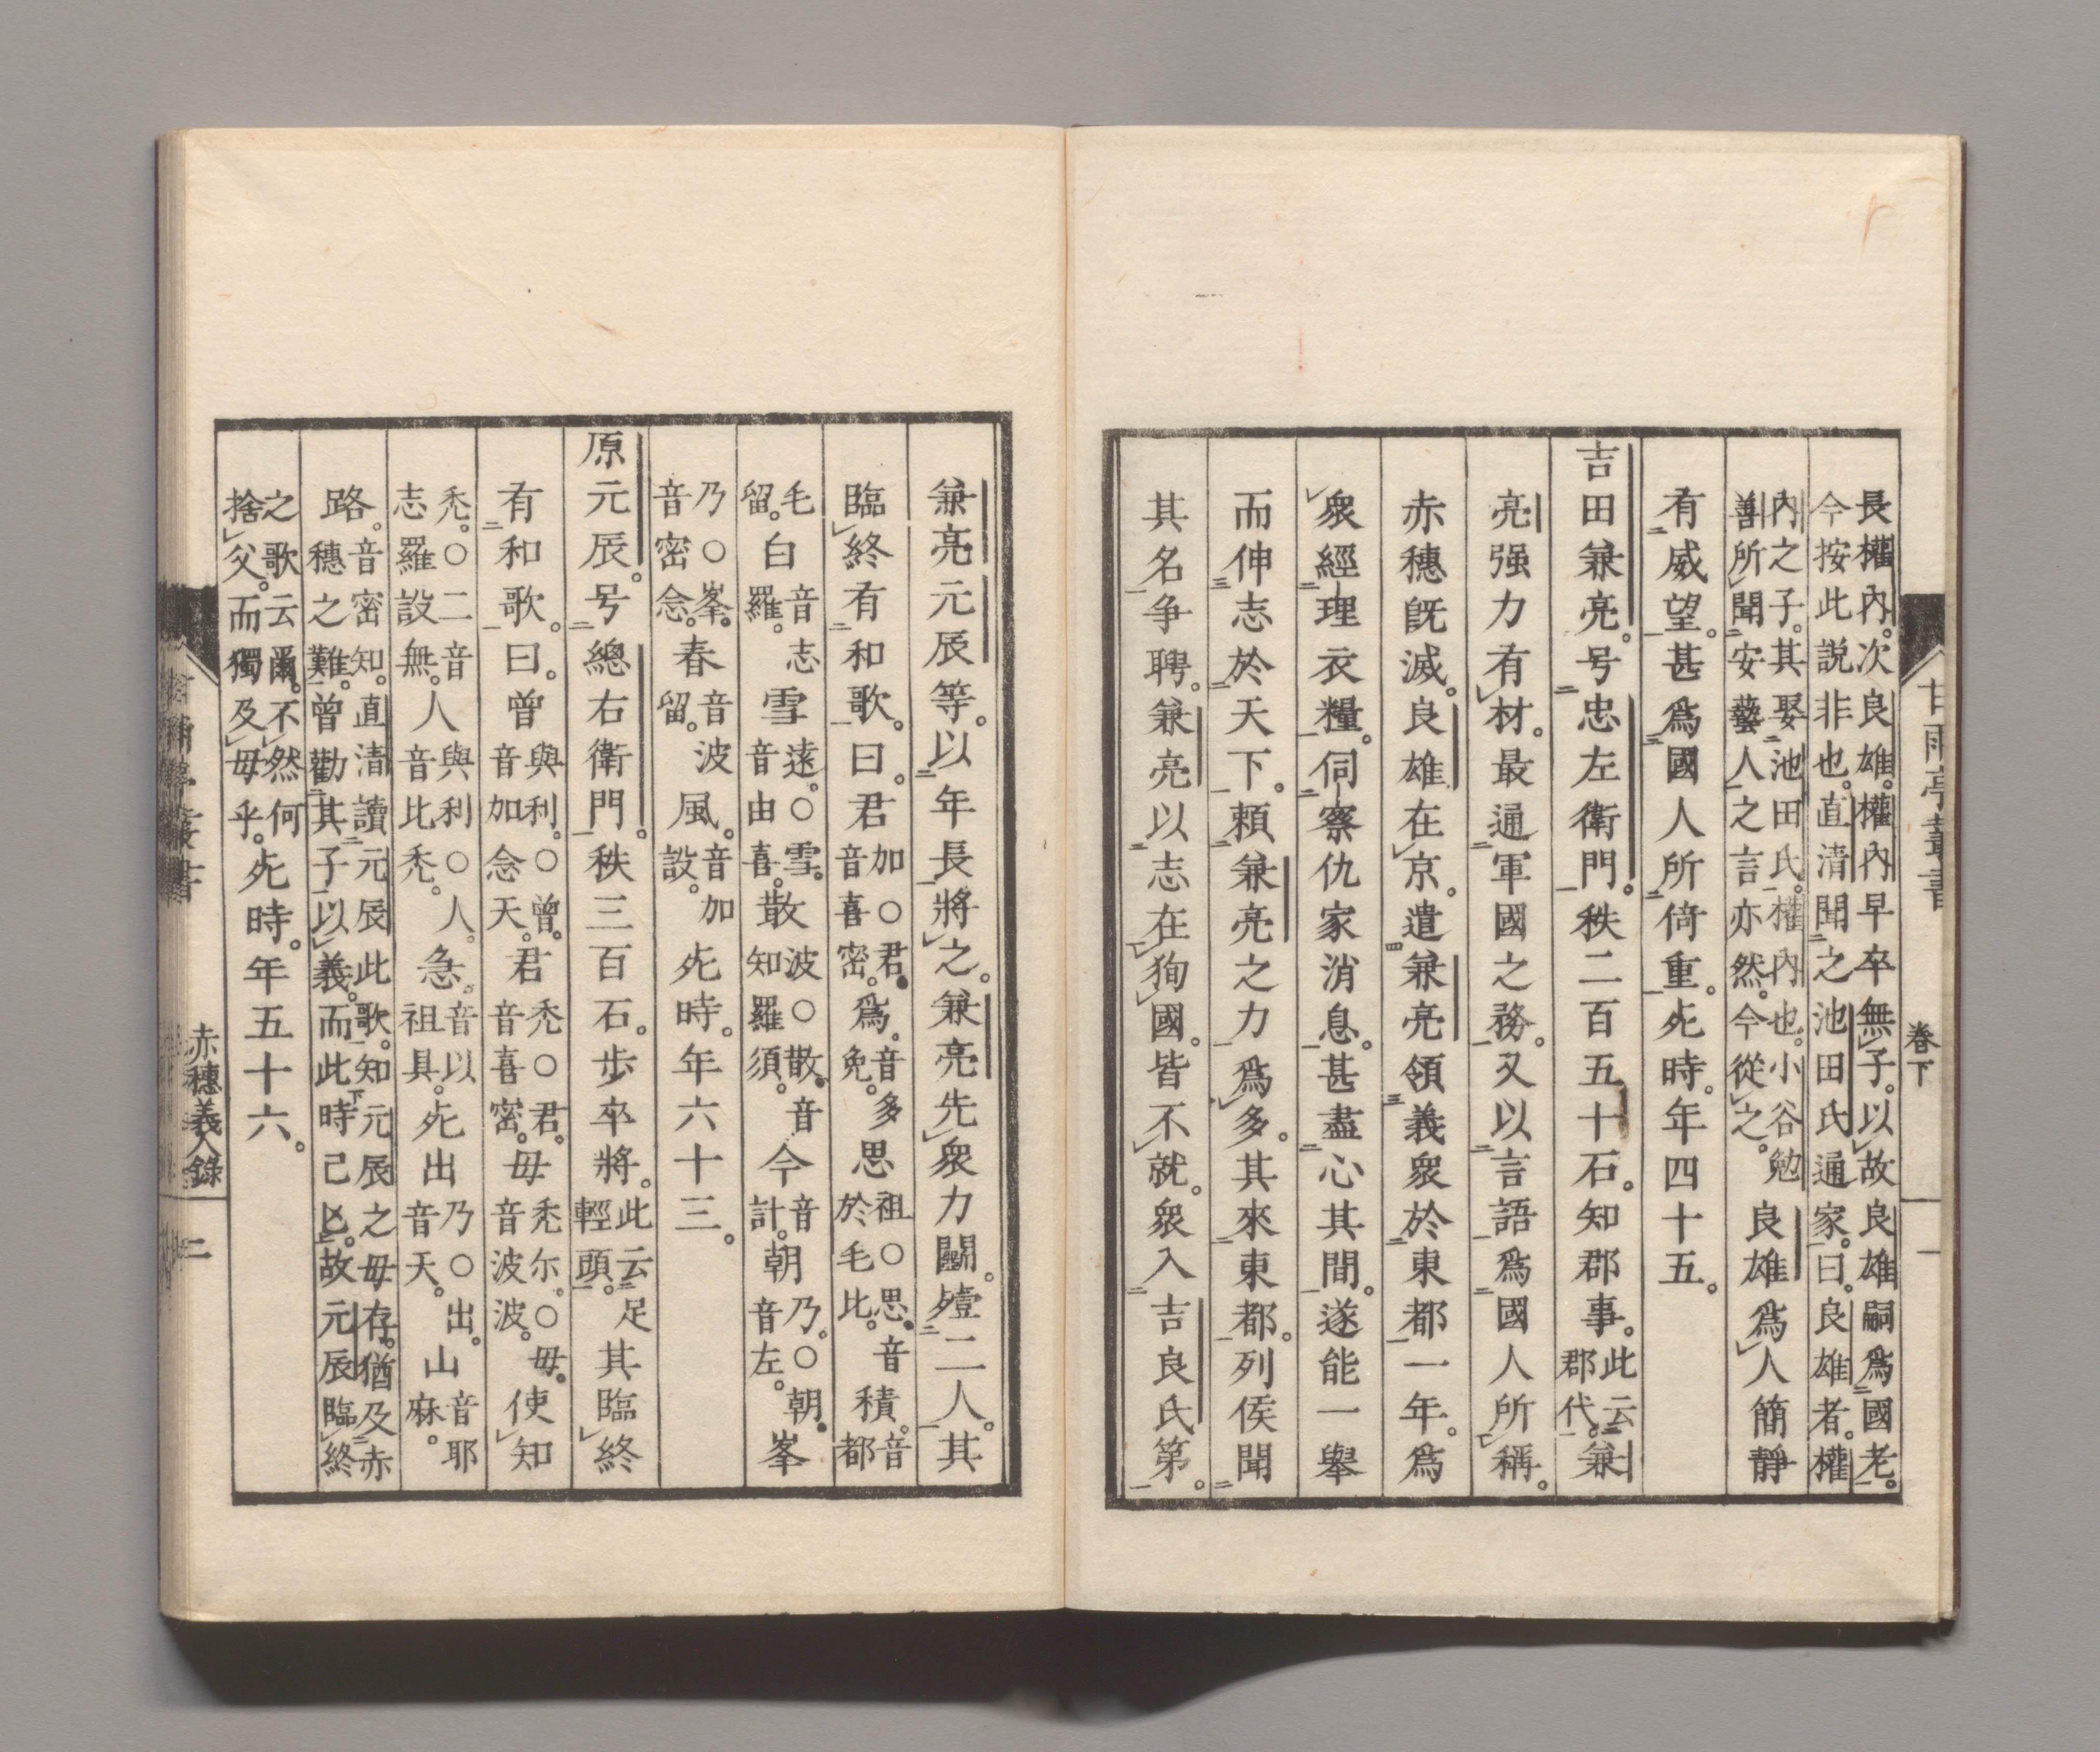 甘雨亭叢書
卷下
一
長權内。次良雄。權内早卒無子。以故良雄嗣爲國老。
今按此説非也。直清聞之池田氏通家。曰。良雄者。權
内之子。其娶池田氏。權内也。小谷勉
善所聞安藝人之言亦然。今從之。
良雄爲人簡靜
有威望。甚爲國人所倚重。死時。年四十五。
吉田兼亮。号忠左衛門。秩二百五十石。知郡事。此云郡代。兼
亮强力有材。最通軍國之務。又以言語爲國人所稱。
赤穗旣滅。良雄在京。遣兼亮領義衆於東都一年。爲
衆經理衣糧。伺察仇家消息。甚盡心其間。遂能一擧
而伸志於天下。頼兼亮之力爲多。其來東都。列侯聞
其名爭聘。兼亮以志在狥國。皆不就。衆入吉良氏第。
兼亮元辰等。以年長將之。兼亮先衆力鬬。殪二人。其
臨終有和歌。曰。君加○君。音喜密。爲。音多免。思祖○思。音於毛比。積。音都
毛留。白音志羅。雪遠。○雪。音由喜。散波○散。音知羅須。今音計。朝乃。○朝。音左。峯
乃○峯。音密念。春音波留。風。音加設。死時。年六十三。
原元辰。号總右衛門。秩三百石。歩卒將。此云足輕頭。其臨終
有和歌。曰。曾與利。○曾。音加念天。君禿○君。音喜密。毋禿尓。○毋。音波波。使知
禿。○二音志羅設無。人與利○人。音比禿。急。音以祖具。死出乃○出。音天。山音耶麻。
路。音密知。直清讀元辰此歌。知元辰之毋存。猶及赤
穗之難。曾勸其子以義。而此時已亡。故元辰臨終
之歌云爾。不然何
捨父。而獨及毋乎。
死時。年五十六。
赤穗義人錄
二